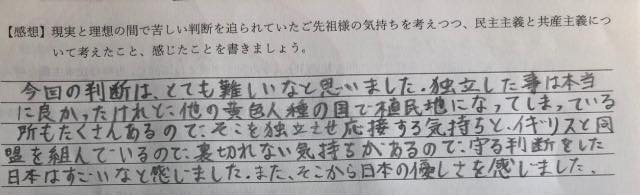 【感想】現実と理想の間で苦しい判断を迫られていたご先祖様の気持ちを考えつつ、民主主義と共産主義につ
いて考えたこと、感じたことを書きましょう。
今回の判断は、とても難しいなと思いました。独立した事は本当
に良かったけれど、他の黄色人種の国で植民地になってしまっている
所もたくさんあるので、そこを独立させ応接する気持ちと、イギリスと同
盟を組んでいるので、裏切れない気持ちがあるので、守る判断をした
日本はすごいなと感じました。また、そこから日本の優しさを感じました。